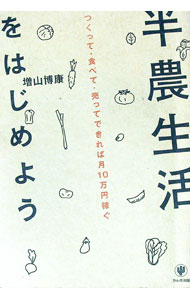 半農生活
をはじめよう
つくって・食べて・売ってできれば月10万円稼ぐ
増山博康
かんき出版